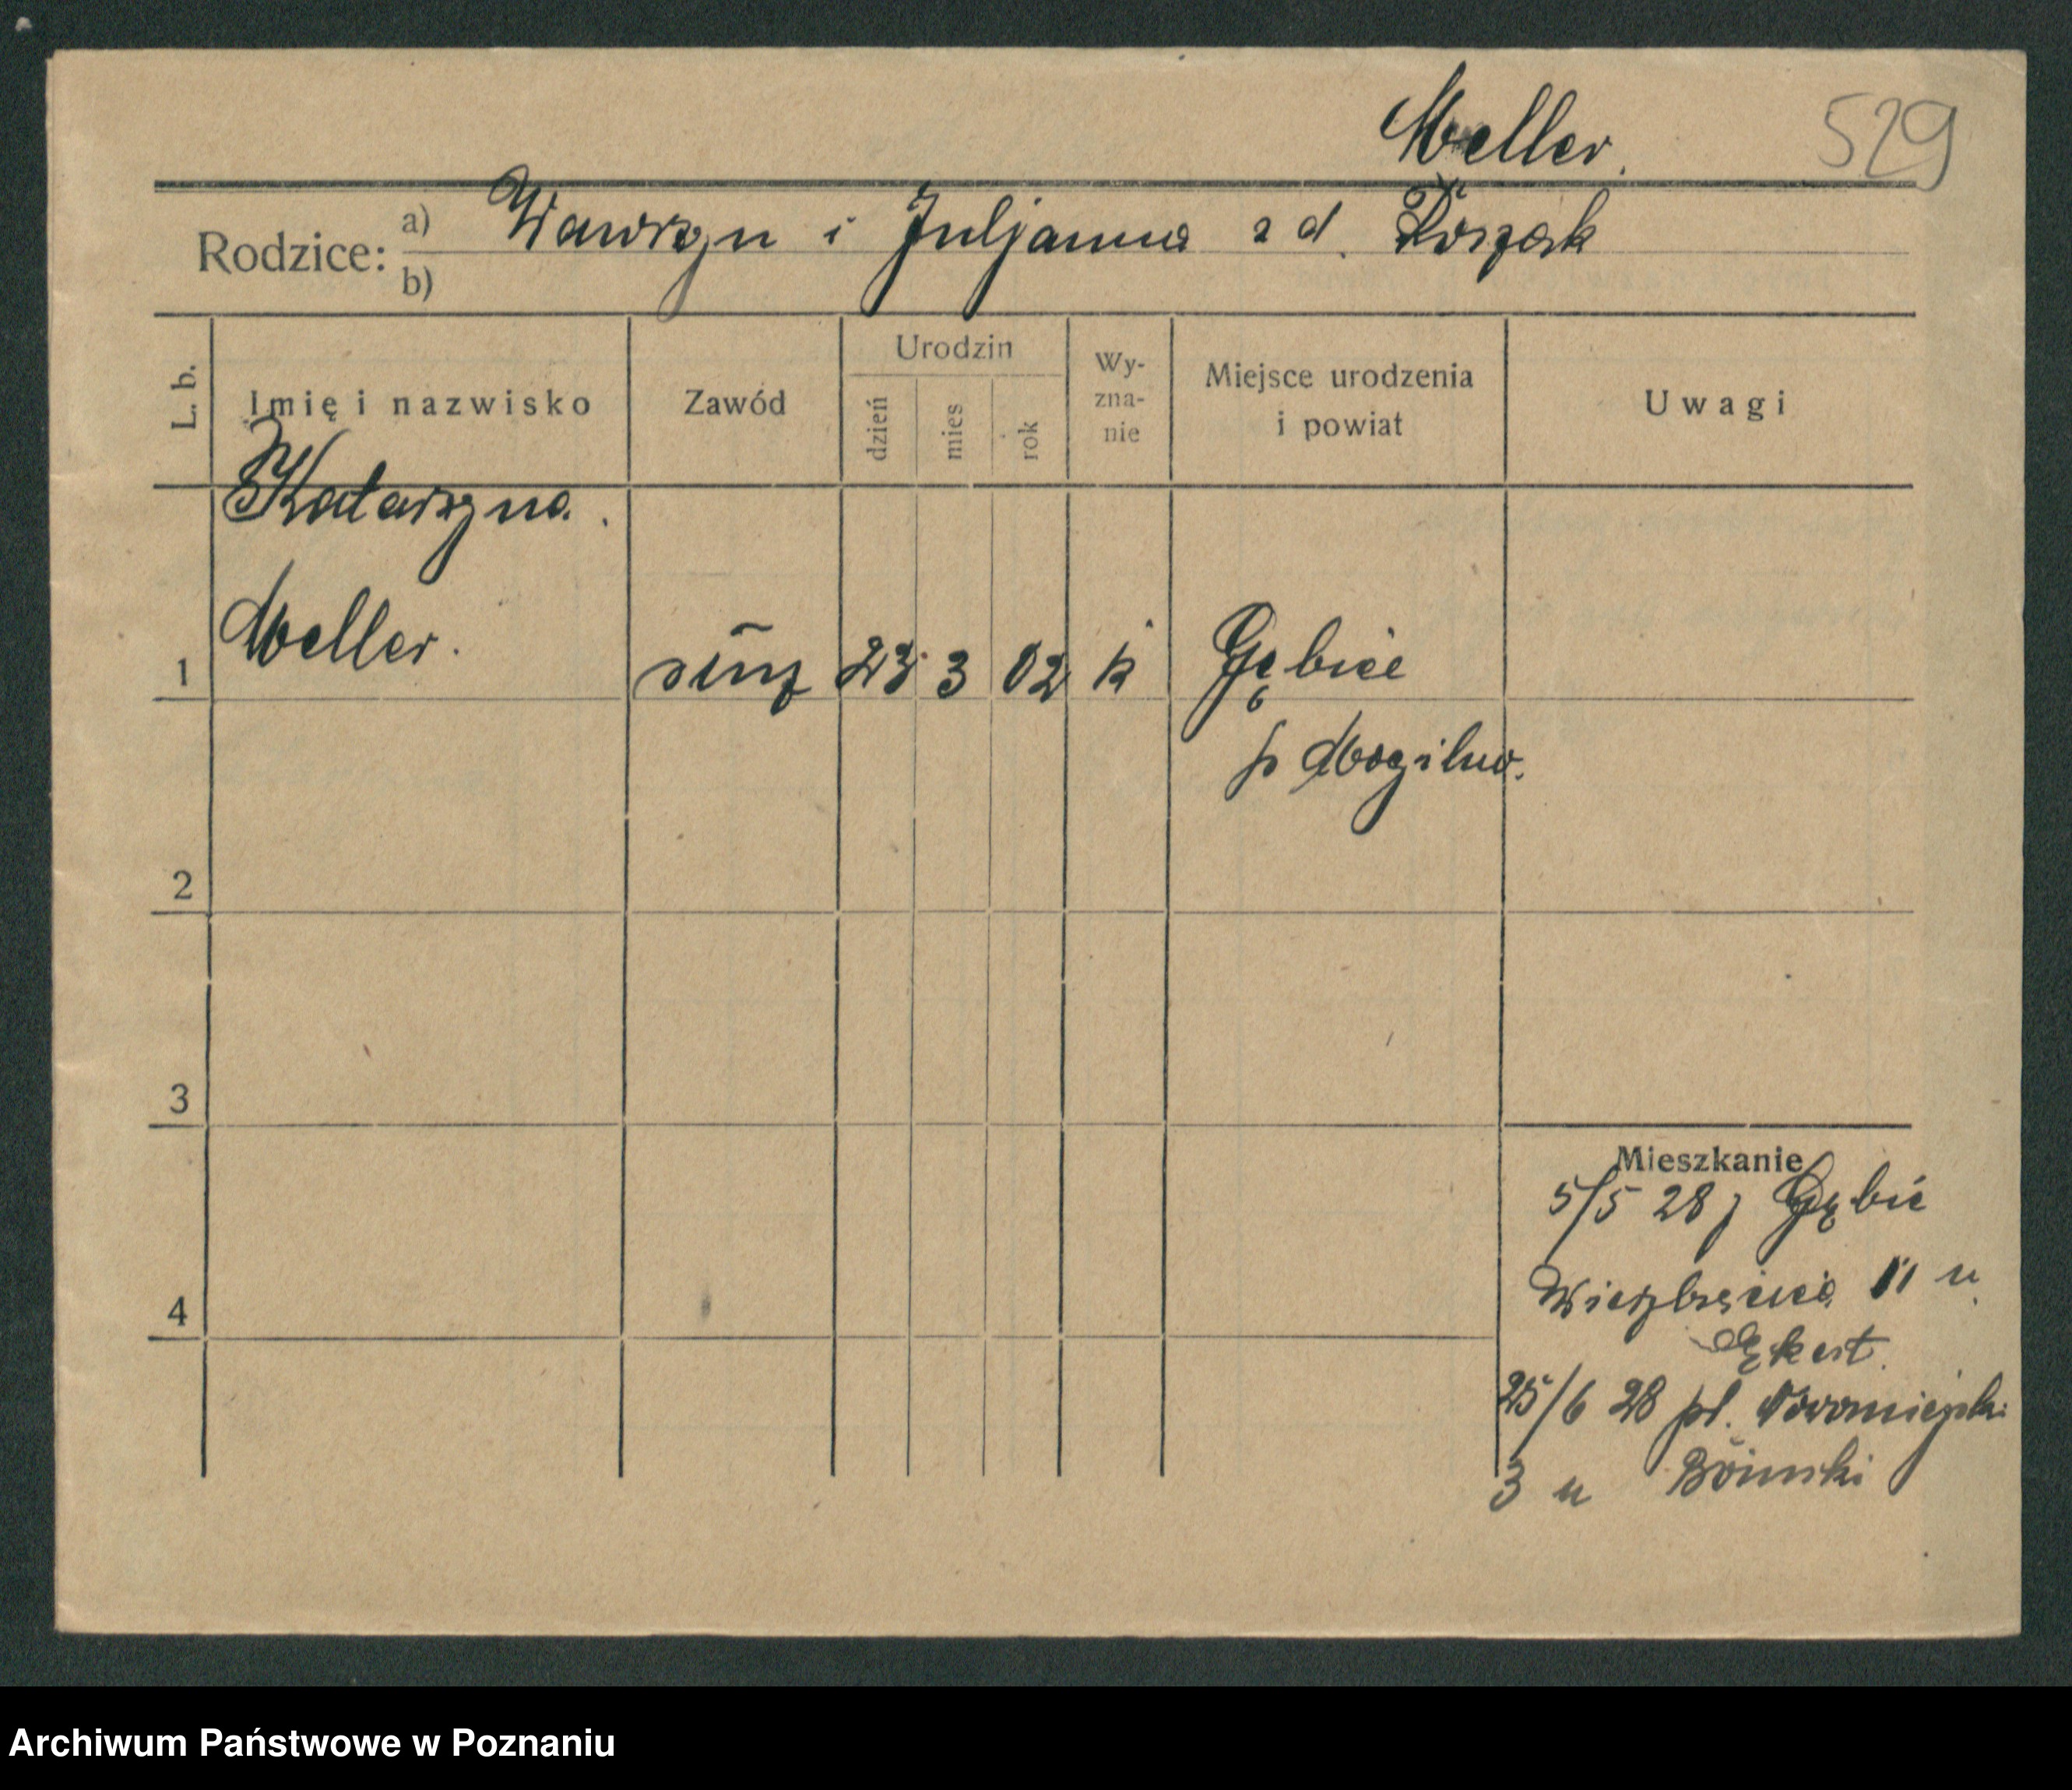 Meller. 529
Rodzice: a) Wawrzyn i Juljanna z d.
b)
L. b. Imię i nazwisko Zawód Urodzin dzień mies rok Wy-zna-nie Miejsce urodzenia i powiat Uwagi
Katarzyna.
1 Meller. służ 23 3 02 k Gębice
p Mogilno.
2
3
4
Mieszkanie
5/5 28 z Gębic
Wierzbięcice 11 u
Ekert.
25/6 28 pl. Nowomiejski
3 u
Archiwum Państwowe w Poznaniu